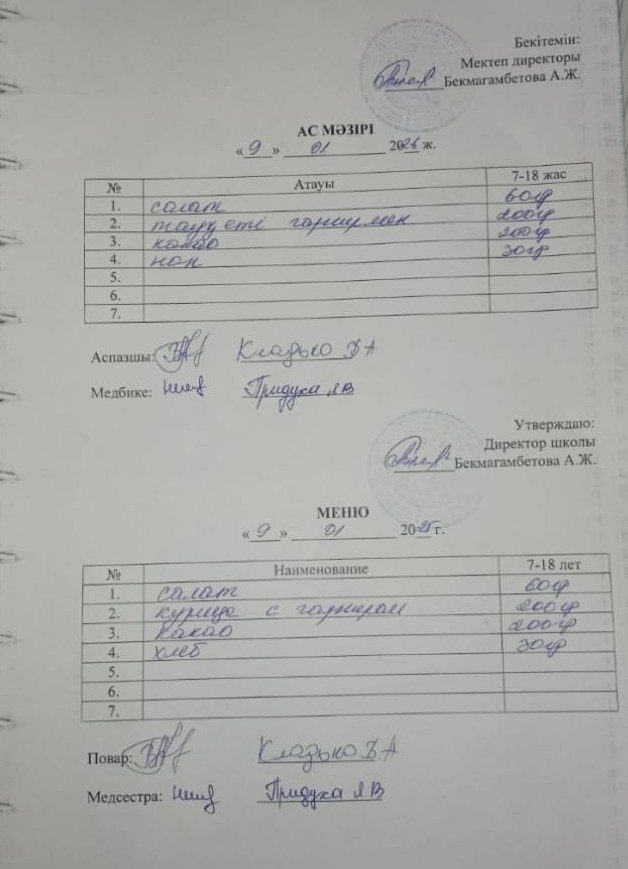 Бекітемін:
Мектеп директоры
Бекмагамбетова А.Ж.
АС МӘЗІРІ
« 9 » 01 2026 ж.
№ Атауы 7-18 жас
1. салат 60гр
2. тауқ еті гарнирмен 200гр
3. какао 200гр
4. нан 30гр
5.
6.
7.
Аспазшы: Кладько В А
Медбике: Придуха ЯВ
Утверждаю:
Директор школы
Бекмагамбетова А.Ж.
МЕНЮ
« 9 » 01 2025 г.
№ Наименование 7-18 лет
1. салат 60гр
2. курица с гарниром 200гр
3. какао 200гр
4. хлеб 30гр
5.
6.
7.
Повар: Кладько В.А
Медсестра: Придуха ЯВ